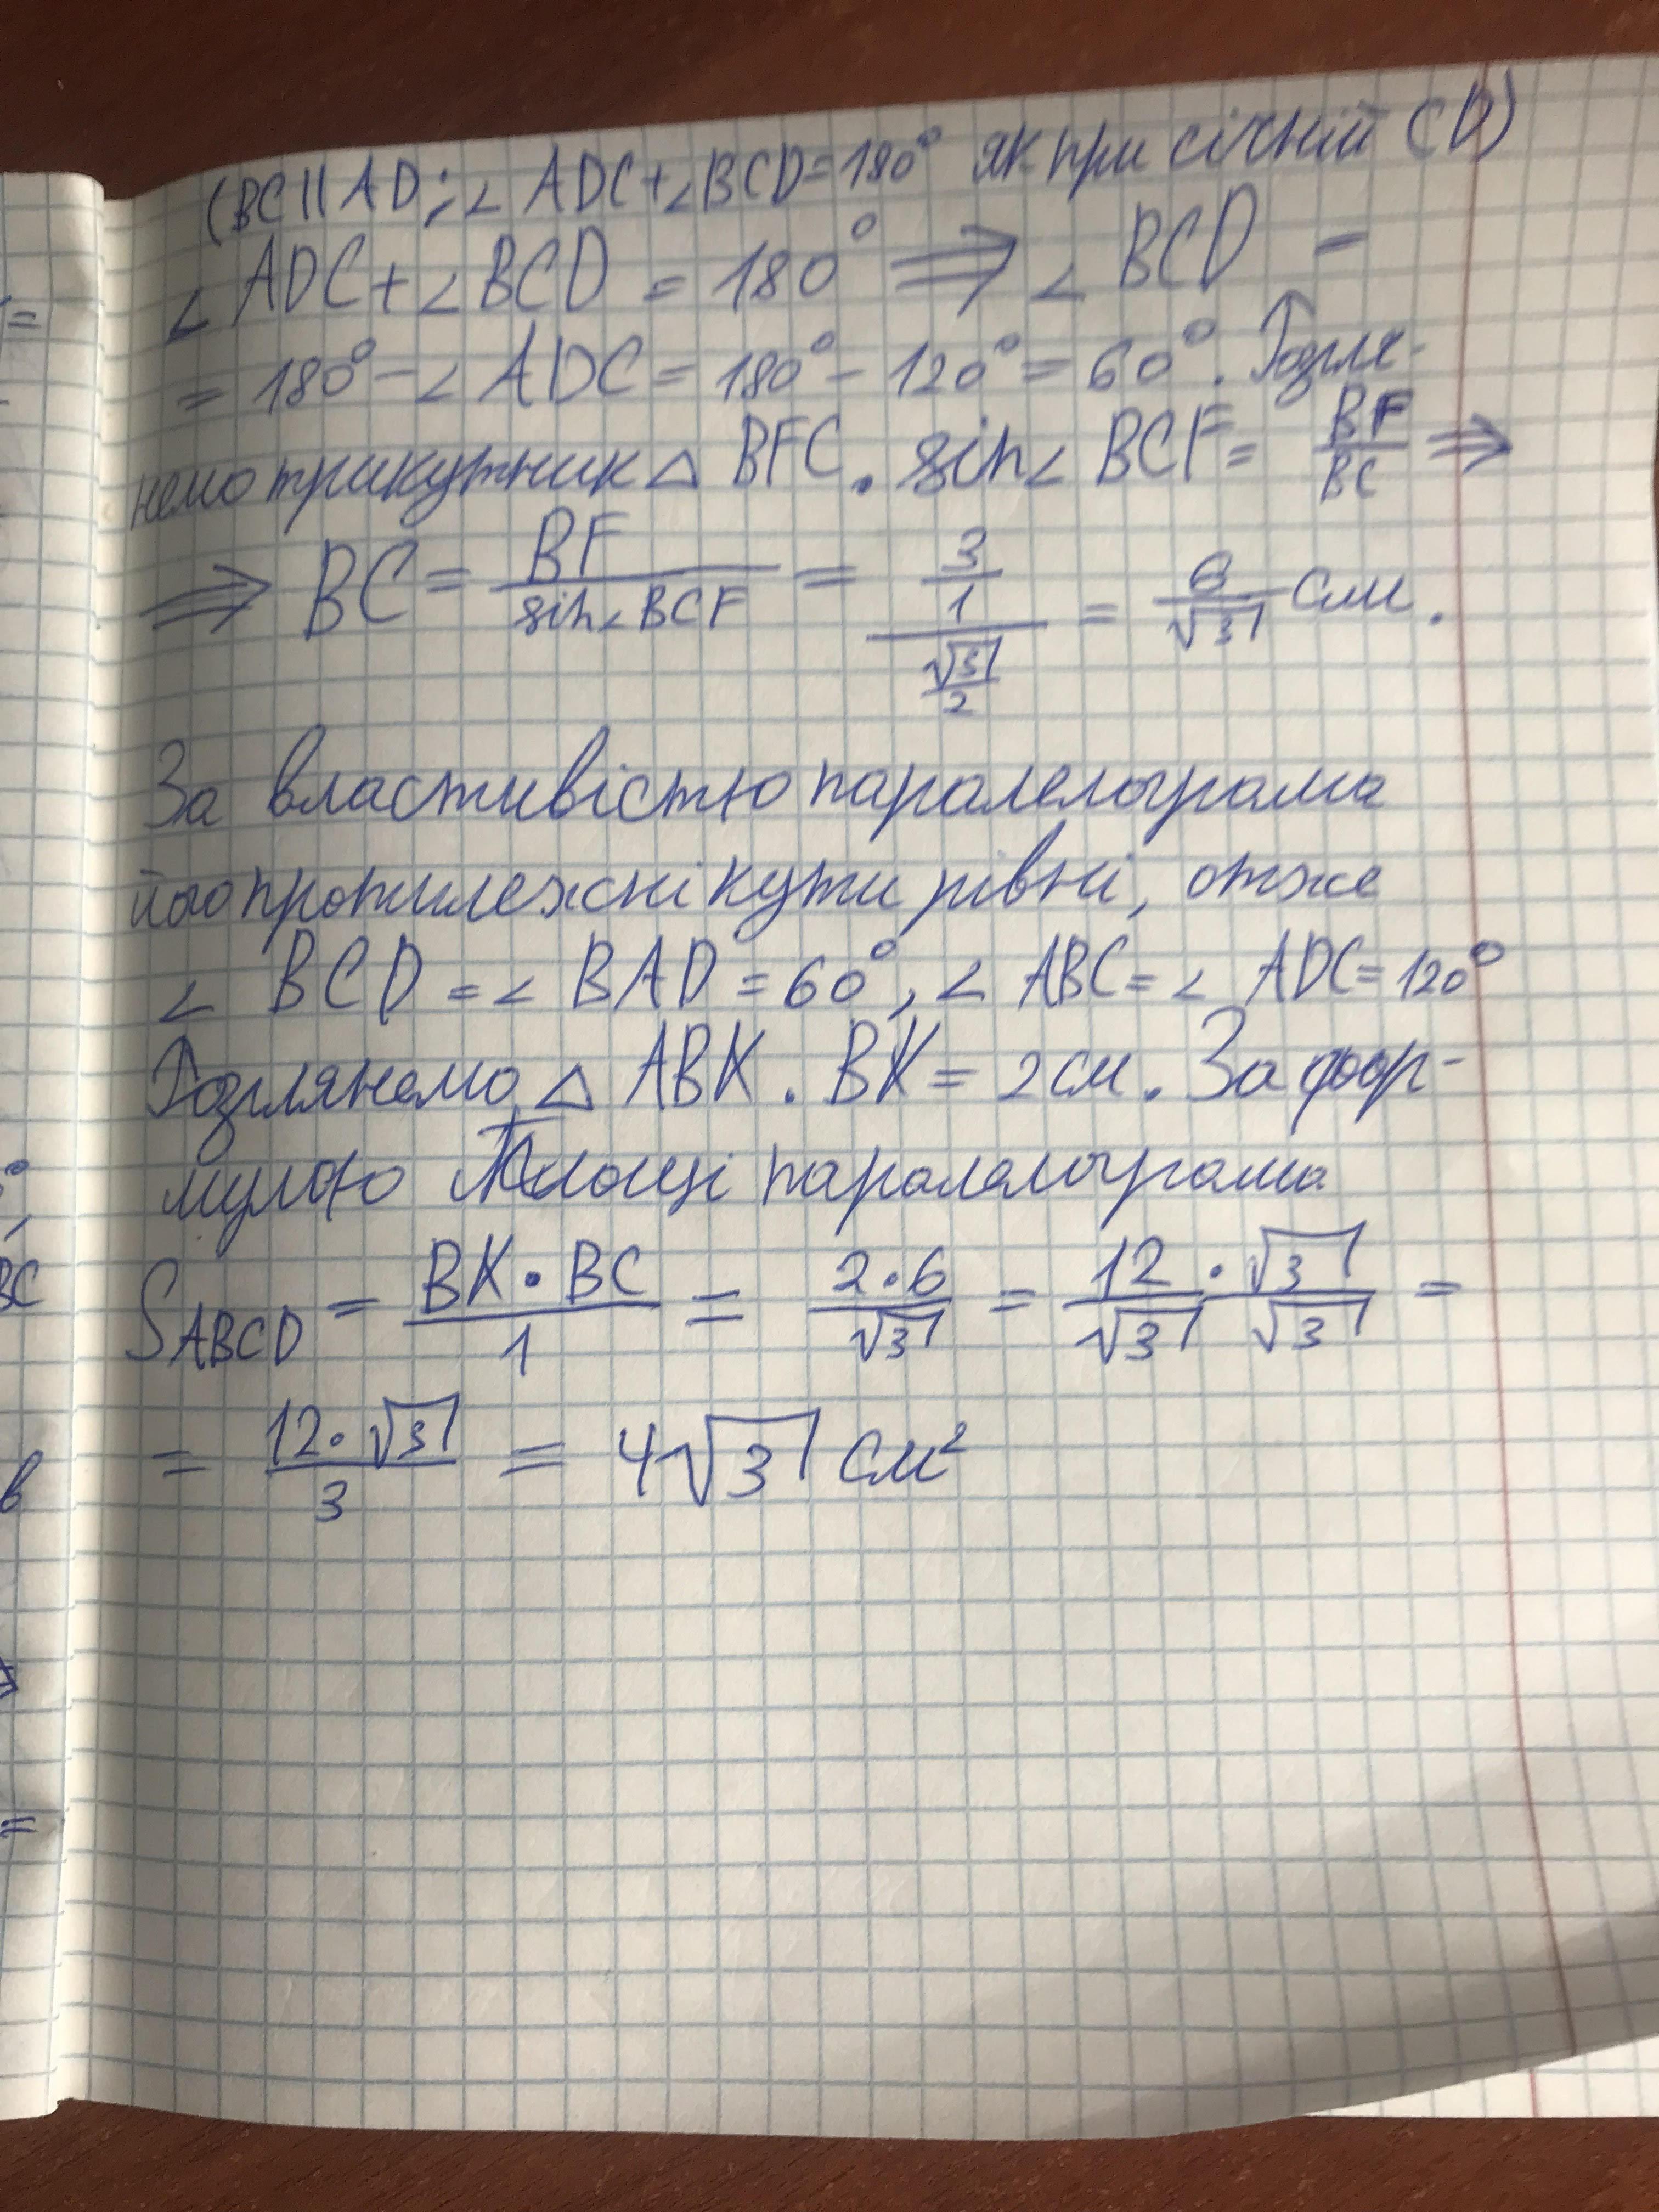 (BC||AD; ∠ADC+∠BCD=180° як при січній CD)
∠ADC+∠BCD = 180° ⇒ ∠BCD =
= 180° - ∠ADC = 180° - 120° = 60°. Розгля-
немо трикутник △BFC. sin∠BCF = BF/BC ⇒
⇒ BC = BF/sin∠BCF = (3/1)/(√3/2) = 6/√3 см.
За властивістю паралелограма
його протилежні кути рівні, отже
∠BCD = ∠BAD = 60°, ∠ABC = ∠ADC = 120°
Розглянемо △ABK. BK = 2 см. За фор-
мулою площі паралелограма
S ABCD = BK·BC/1 = 2·6/√3 = 12/√3 · √3/√3 =
= 12·√3/3 = 4√3 см²
=
°
BC
в
=